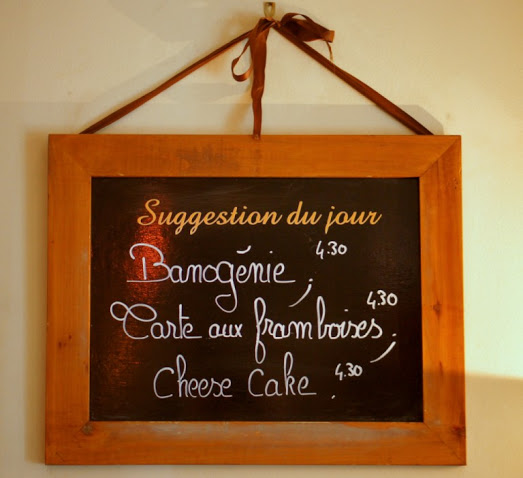 Suggestion du jour
Banogénie, 4.30
Tarte aux framboises, 4.30
Cheese Cake. 4.30